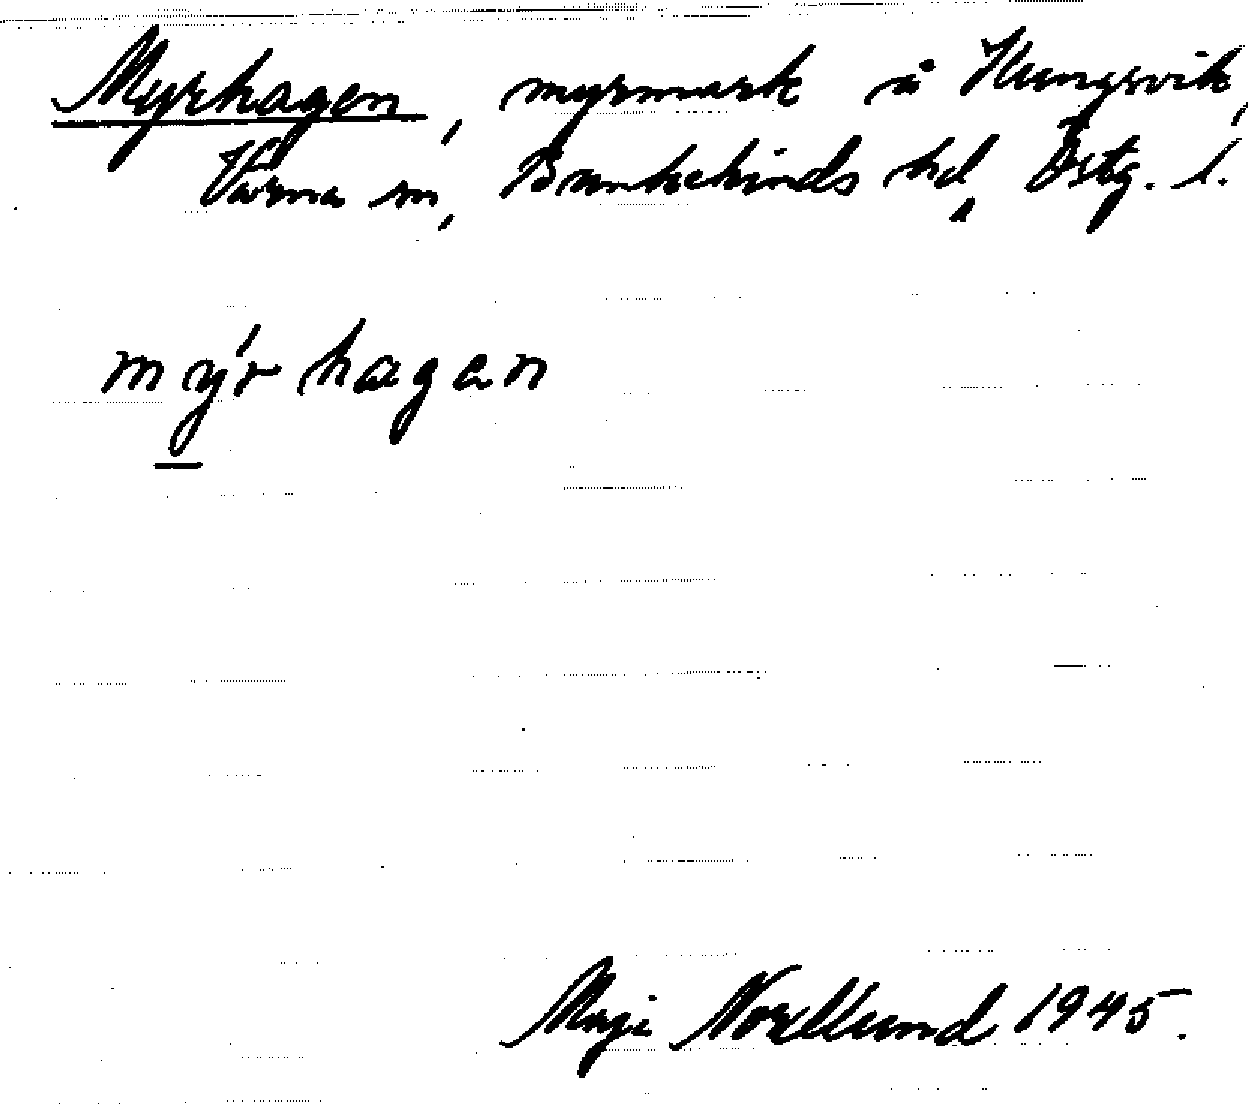 Myrhagen, myrmark å Kungsvik,
Värna sn, Bankekinds hd, Östg. l.
mýr hagan
Maji Nordlund 1945.